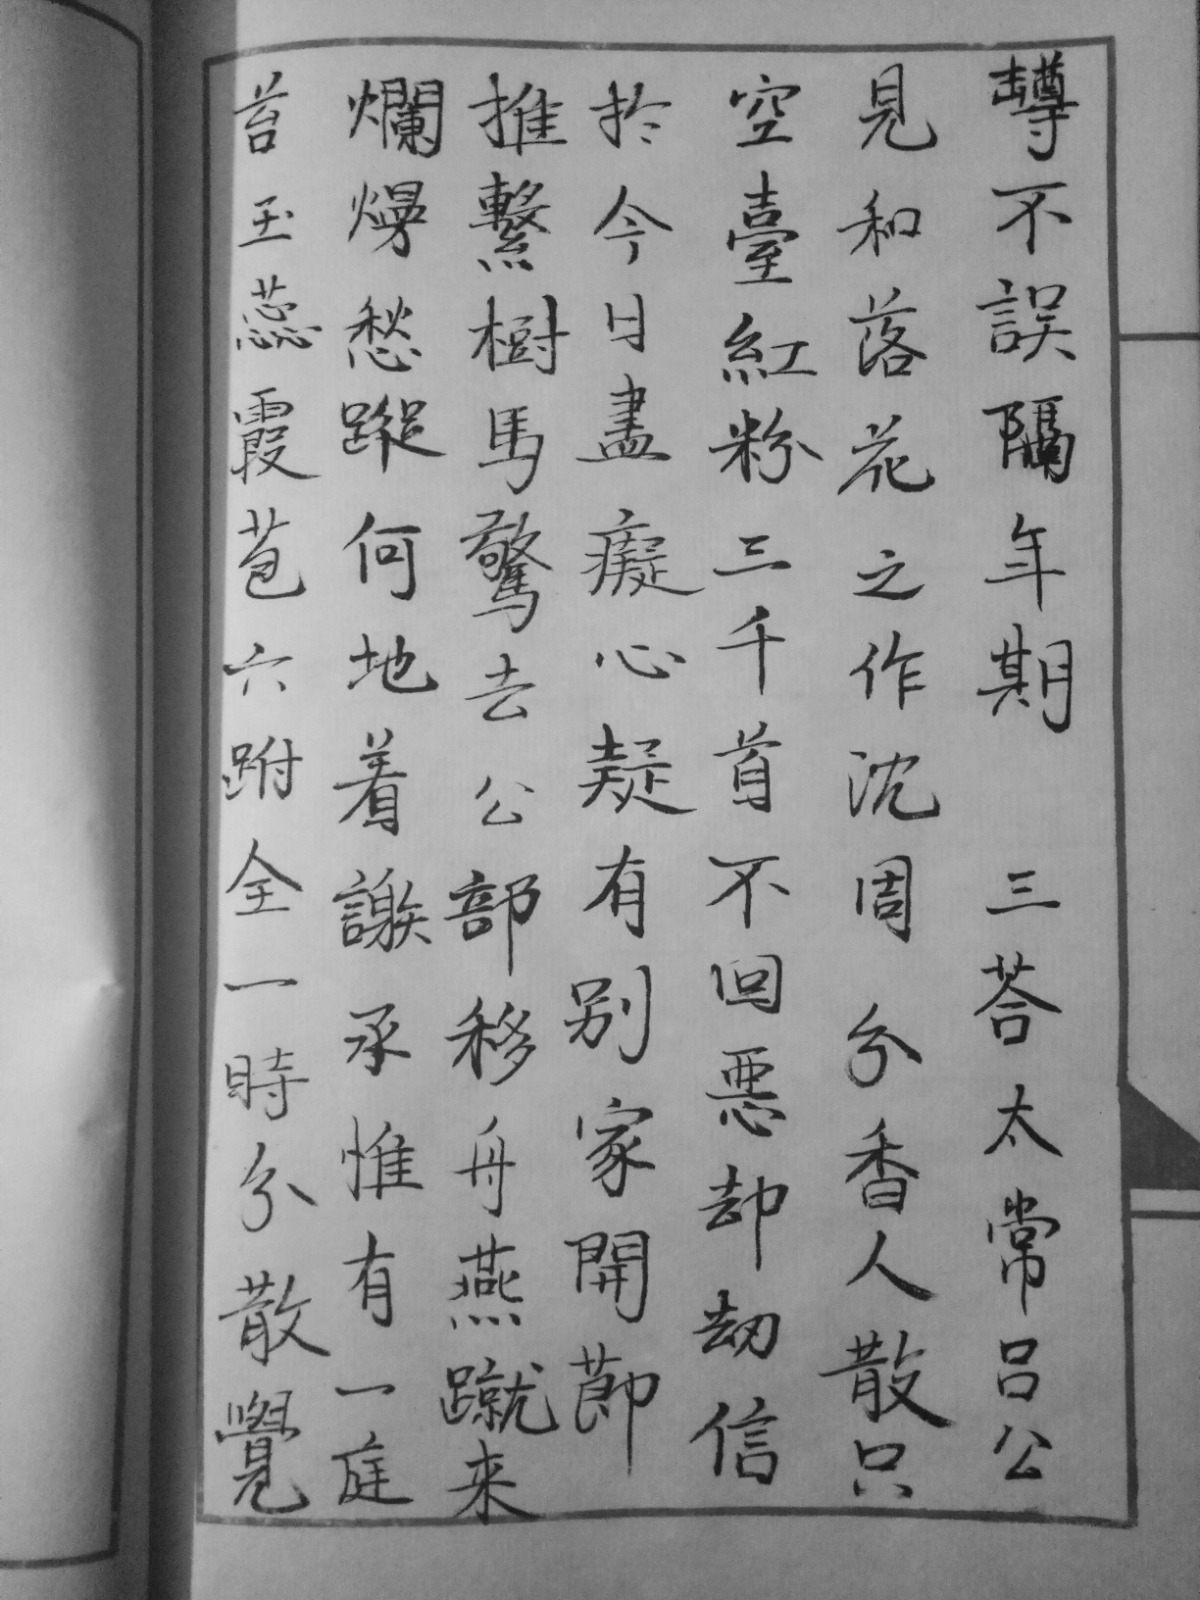 罇不誤隔年期　三荅太常吕公
見和落花之作沈周分香人散只
空臺紅粉三千首不回惡却劫信
扵今日盡癡心疑有別家開莭
推繫樹馬驚去公部移舟燕蹴来
爛熳愁蹤何地着謝承惟有一庭
苔玉蕊霞苞六跗全一時分散覺